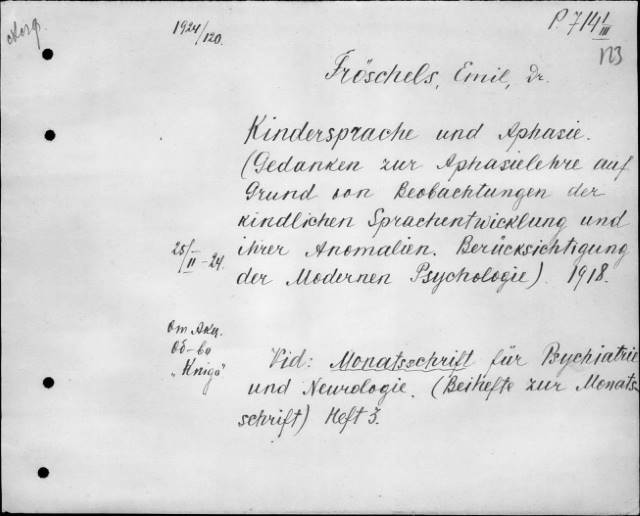 1924/120.
P. 714 I/III
Fröschels, Emil, Dr.
Kindersprache und Aphasie.
(Gedanken zur Aphasielehre auf
Grund von Beobachtungen der
kindlichen Sprachentwicklung und
ihrer Anomalien. Berücksichtigung
der Modernen Psychologie). 1918.
25/II-24.
От Акц.
Об-ва
"Kniga"
Vid: Monatsschrift für Psychiatrie
und Neurologie. (Beihefte zur Monats-
schrift) Heft 3.